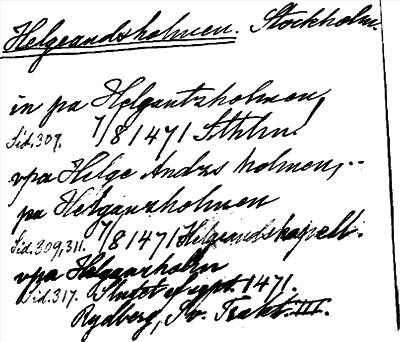 Helgeandsholmen. Stockholm.
in pa Helgantzholmen,
Sid. 309. 7/8 1471 Sthlm.
vpa Helge Andzs holmen,
pa Helganzholmen
Sid. 309, 311. 7/8 1471 Helgeandskapell.
vpa Helganzholm
Sid. 317. Slutet af sept. 1471.
Rydberg, Sv. Trakt. III.